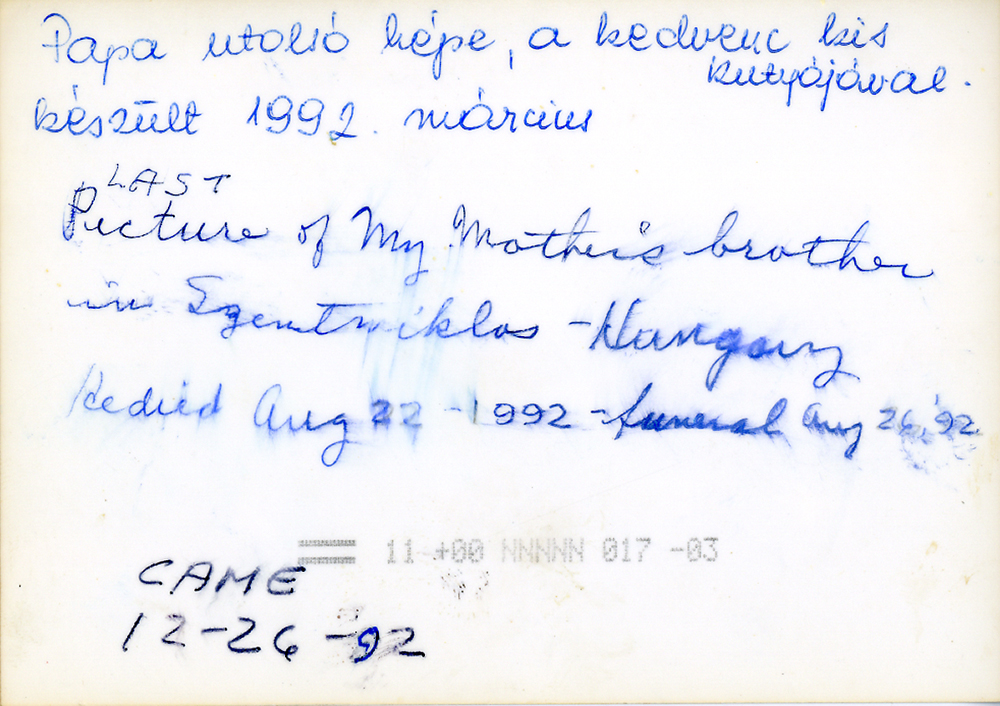 Papa utolsó képe, a kedvenc kis
kutyájával.
készült 1992. március
LAST
Picture of My Mother's brother
in Szentmiklos - Hungary
He died Aug 22 - 1992 - funeral Aug 26, '92
11 +00 NNNNN 017 -03
CAME
12-26-92